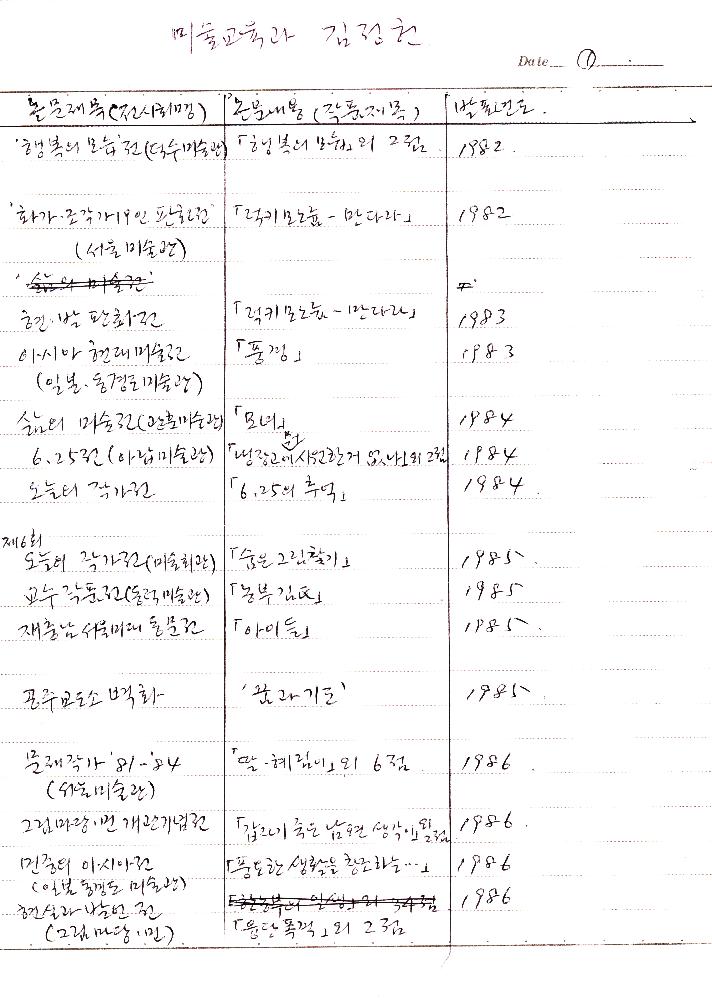 미술교육과 김정헌
Date ①
논문제목(전시회명) 논문내용(작품제목) 발표년도
'행복의 모습'전(덕수미술관) 「행복의 모습」외 2점 1982.
'화가·조각가 19인 판화전' 「럭키모노륨-만다라」 1982
(서울미술관)
'삶의 미술전'
현·발 판화전 「럭키모노륨-만다라」 1983
아시아 현대미술전 「풍경」 1983
(일본·동경도미술관)
삶의 미술전(관훈미술관) 「모녀」 1984
6.25전(아랍미술관) 「냉장고에 뭐 시원한거 없나」외 2점 1984
오늘의 작가전 「6.25의 추억」 1984.
제6회
오늘의 작가전(미술회관) 「숨은그림찾기」 1985.
교수작품전(동덕미술관) 「농부김氏」 1985
재충남 서울미대 동문전 「아이들」 1985.
공주교도소 벽화 '꿈과 기도' 1985.
문제작가 '81-'84 「딸·혜림이」외 6점 1986
(서울미술관)
그림마당·민 개관기념전 「갑자기 죽은 남편 생각이」외 2점 1986.
민중의 아시아전 「풍요한 생활을 창조하는…」 1986
(일본 동경도 미술관)
현실과 발언 전 「한농부의 일생」외 34점 1986
(그림마당·민) 「융단폭격」외 2점